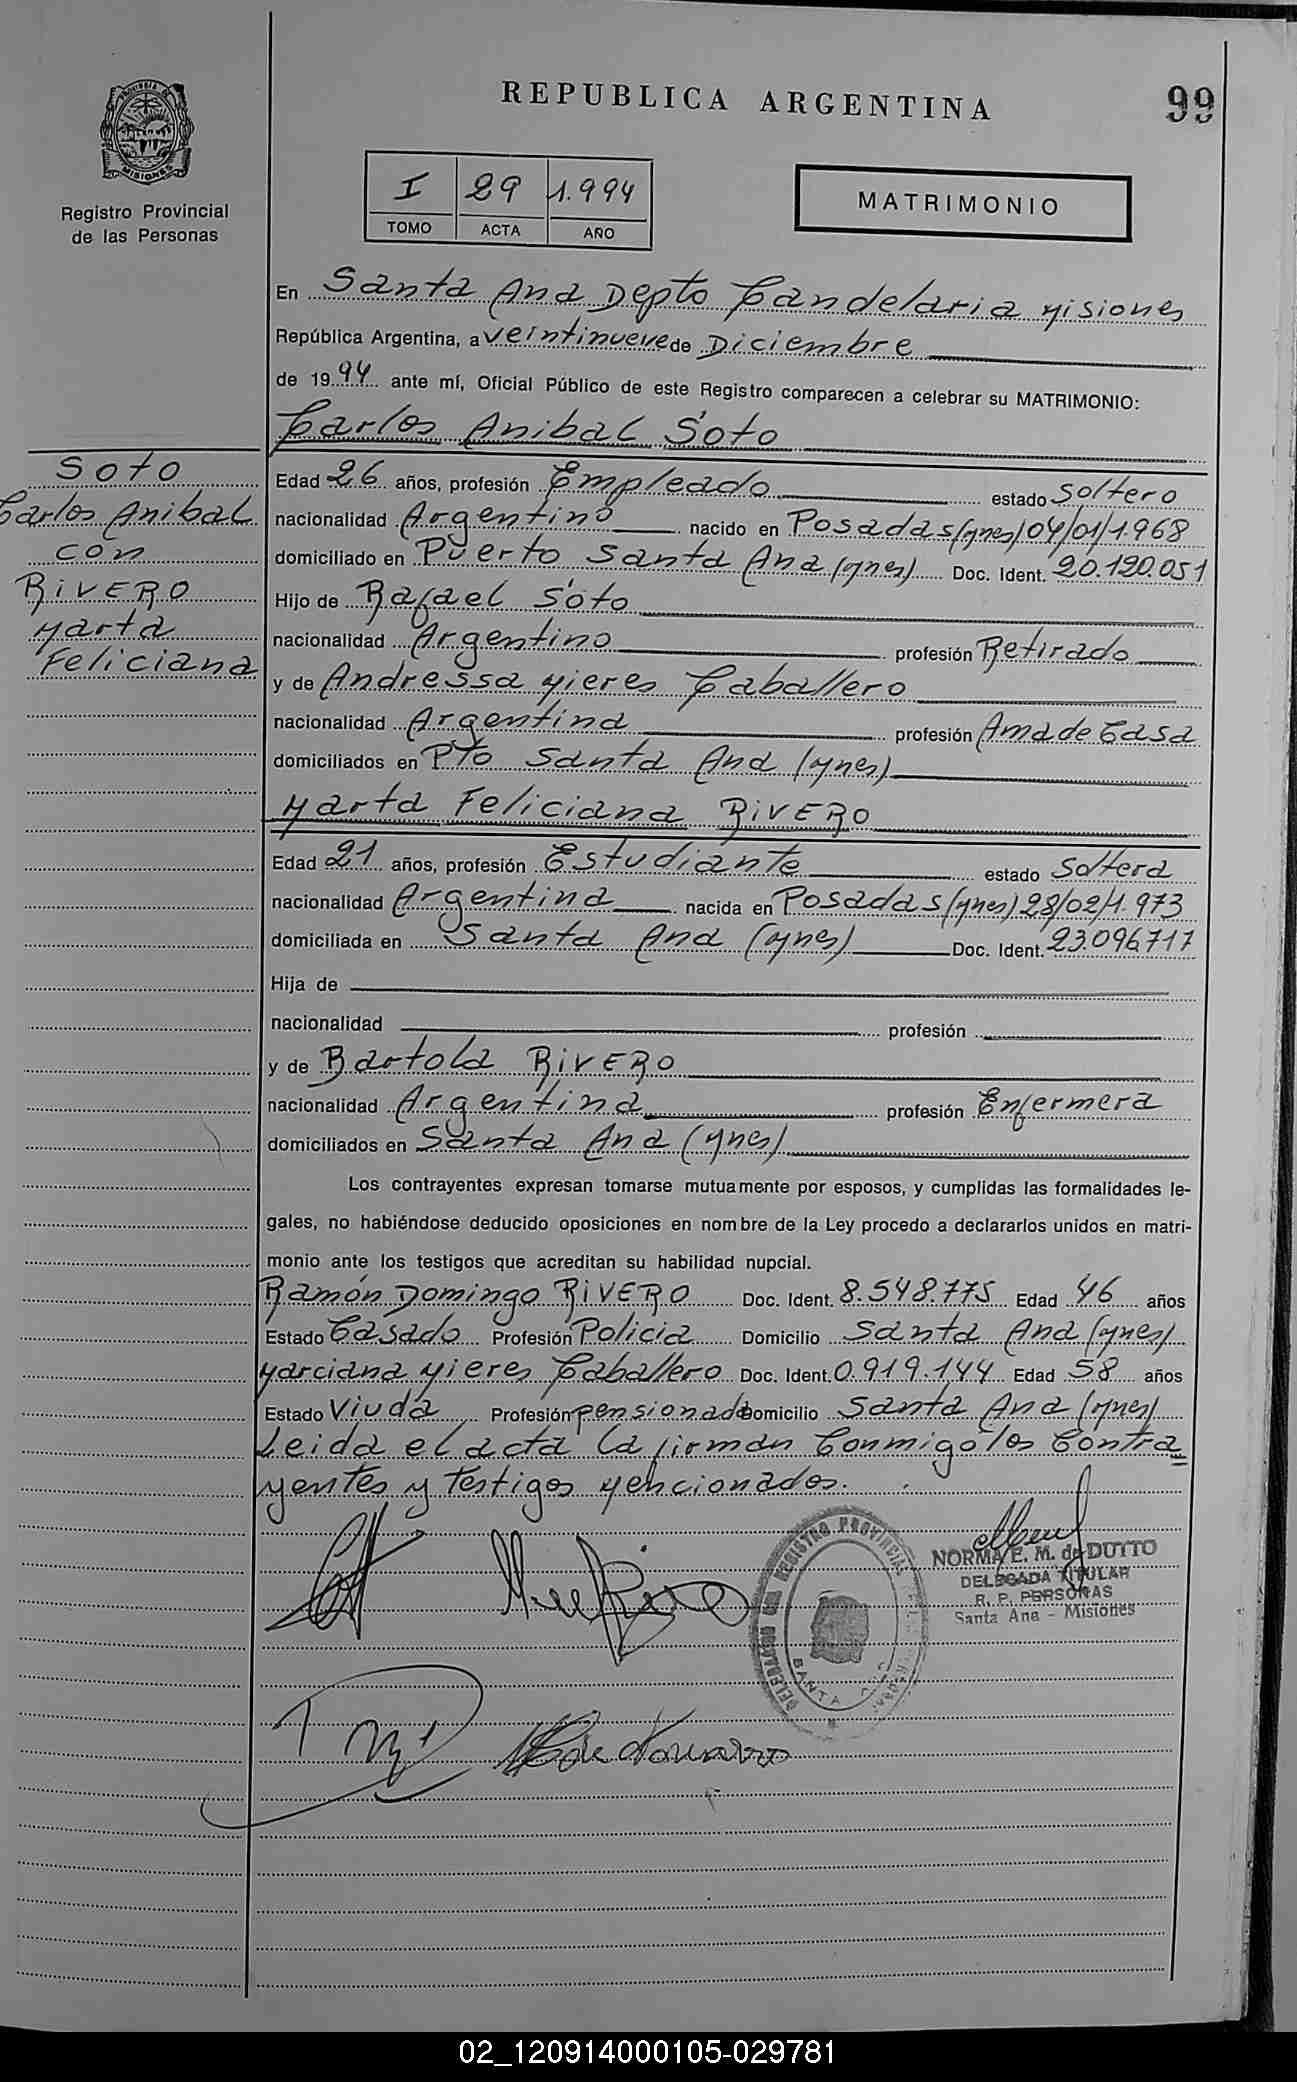 REPUBLICA ARGENTINA
99
PROVINCIA DE
MISIONES
Registro Provincial
de las Personas
I 29 1.994
TOMO ACTA AÑO
MATRIMONIO
En Santa Ana Depto Candelaria Misiones
República Argentina, a veintinueve de Diciembre
de 1994 ante mí, Oficial Público de este Registro comparecen a celebrar su MATRIMONIO:
Carlos Anibal Soto
Soto
Carlos Anibal
con
RIVERO
Marta
Feliciana
Edad 26 años, profesión Empleado estado Soltero
nacionalidad Argentino nacido en Posadas (Mnes) 04/01/1.968
domiciliado en Puerto Santa Ana (Mnes) Doc. Ident. 20.120.051
Hijo de Rafael Soto
nacionalidad Argentino profesión Retirado
y de Andressa Mieres Caballero
nacionalidad Argentina profesión Ama de Casa
domiciliados en Pto Santa Ana (Mnes)
Marta Feliciana RIVERO
Edad 21 años, profesión Estudiante estado Soltera
nacionalidad Argentina nacida en Posadas (Mnes) 28/02/1.973
domiciliada en Santa Ana (Mnes) Doc. Ident. 23.096.717
Hija de
nacionalidad profesión
y de Bartola RIVERO
nacionalidad Argentina profesión Enfermera
domiciliados en Santa Ana (Mnes)
Los contrayentes expresan tomarse mutuamente por esposos, y cumplidas las formalidades le-
gales, no habiéndose deducido oposiciones en nombre de la Ley procedo a declararlos unidos en matri-
monio ante los testigos que acreditan su habilidad nupcial.
Ramón Domingo RIVERO Doc. Ident. 8.548.775 Edad 46 años
Estado Casado Profesión Policia Domicilio Santa Ana (Mnes)
Marciana Mieres Caballero Doc. Ident. 0.919.144 Edad 58 años
Estado Viuda Profesión pensionada Domicilio Santa Ana (Mnes)
Leida el acta la firman Conmigo los Contra
yentes y Testigos Mencionados.
NORMA E. M. de DUTTO
DELEGADA TITULAR
R. P. PERSONAS
Santa Ana - Misiones
DELEGACION REGISTRO PROVINCIAL
SANTA ANA
02_120914000105-029781